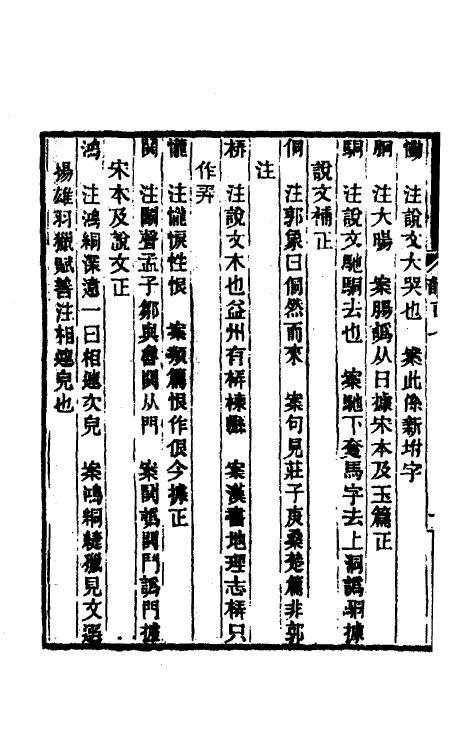 慟　注說文大哭也　案此係新坿字
胴　注大腸　案腸譌从日據宋本及玉篇正
駧　注說文馳駧去也　案馳下奪馬字去上洞譌駧據
說文補正
侗　注郭象曰侗然而來　案句見莊子庚桑楚篇非郭
注
桥　注說文木也益州有桥棟縣　案漢書地理志桥只
作弄
㦕　注㦕悷性恨　案類篇恨作佷今據正
鬨　注鬭聲孟子鄒與魯鬨从門　案鬨譌鬨鬥譌門據
宋本及說文正
鴻　注鴻絧深遠一曰相連次皃　案鴻絧緁獵見文選
揚雄羽獵賦善注相連皃也